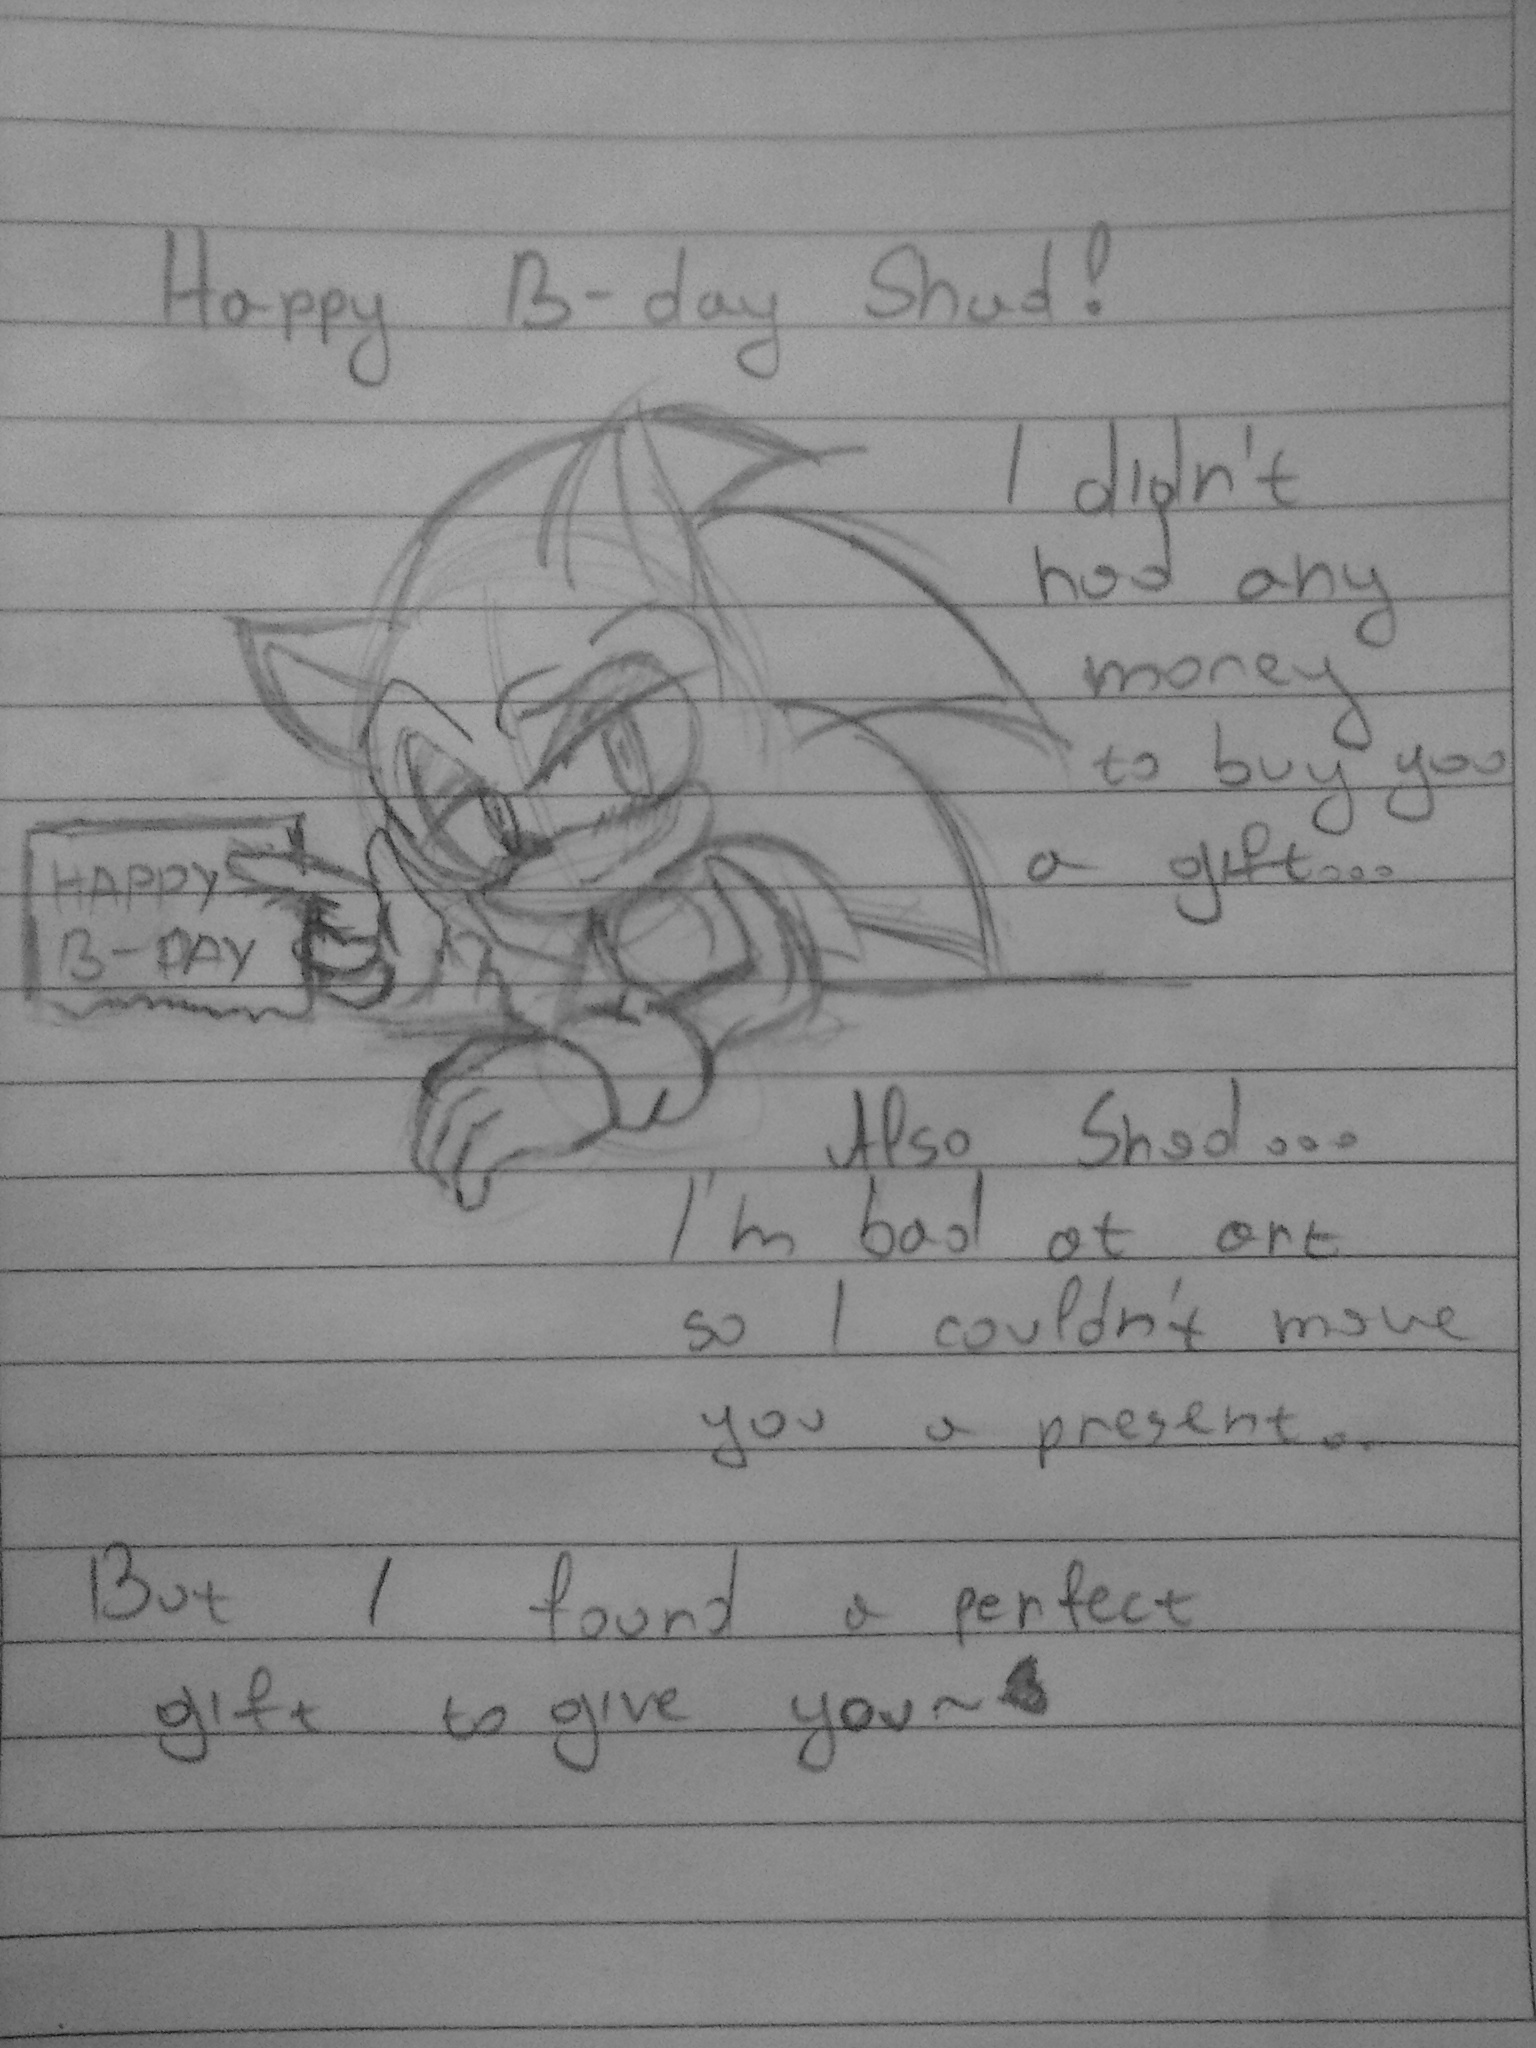 Happy B-day Shad!
I didn't
had any
money
to buy you
a gift...
HAPPY
B-DAY
Also Shad...
I'm bad at art
so I couldn't make
you a present..
But I found a perfect
gift to give you~